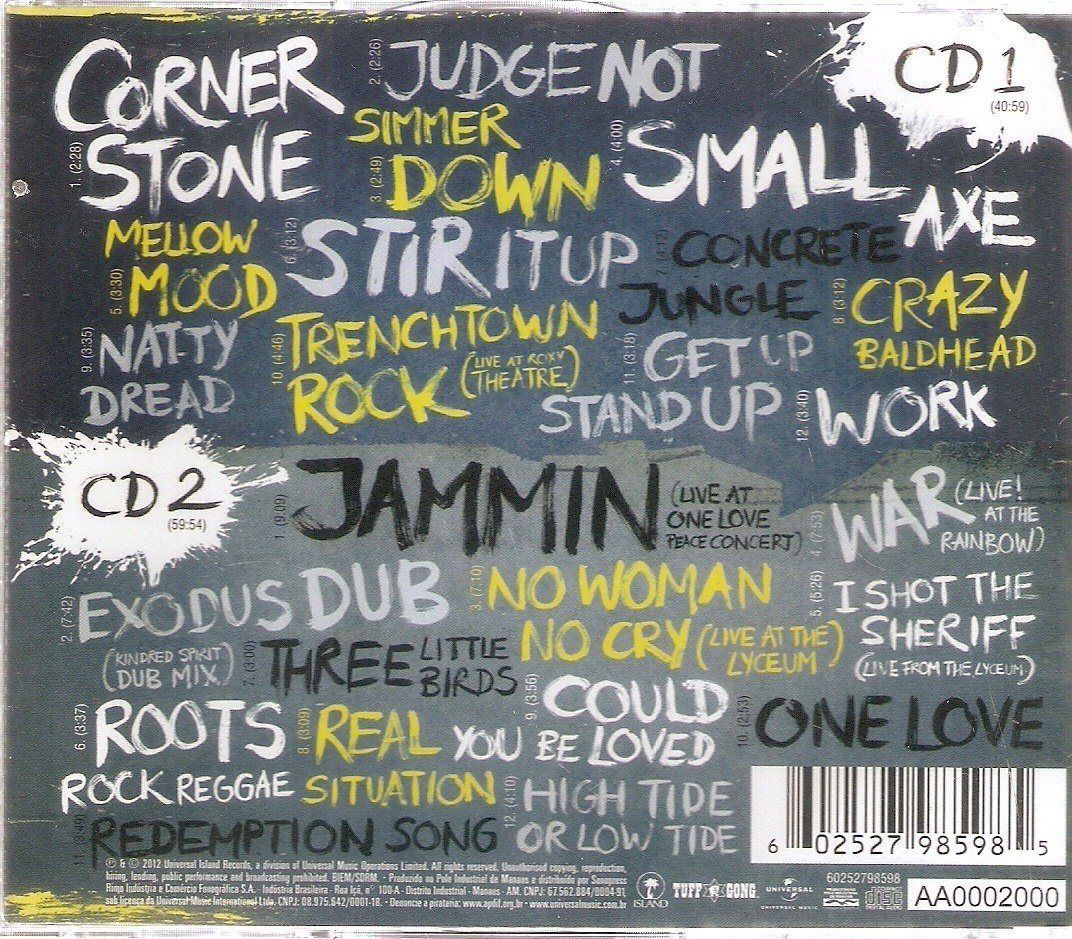 CD 1
(40:59)
1. (2:28) CORNER
STONE
2. (2:26) JUDGE NOT
3. (2:49) SIMMER
DOWN
4. (4:00) SMALL
AXE
5. (3:30) MELLOW
MOOD
6. (3:12) STIR IT UP
7. (4:12) CONCRETE
JUNGLE
8. (3:12) CRAZY
BALDHEAD
9. (3:35) NATTY
DREAD
10. (4:46) TRENCHTOWN
ROCK (LIVE AT ROXY
THEATRE)
11. (3:18) GET UP
STAND UP
12. (3:40) WORK
CD 2
(59:54)
1. (9:09) JAMMIN (LIVE AT
ONE LOVE
PEACE CONCERT)
2. (7:42) EXODUS DUB
(KINDRED SPIRIT
DUB MIX)
3. (7:10) NO WOMAN
NO CRY (LIVE AT THE
LYCEUM)
4. (7:53) WAR (LIVE!
AT THE
RAINBOW)
5. (5:26) I SHOT THE
SHERIFF
(LIVE FROM THE LYCEUM)
6. (3:37) ROOTS
ROCK REGGAE
7. (3:00) THREE LITTLE
BIRDS
8. (3:09) REAL
SITUATION
9. (3:56) COULD
YOU BE LOVED
10. (2:53) ONE LOVE
11. (3:49) REDEMPTION SONG
12. (4:10) HIGH TIDE
OR LOW TIDE
℗ & © 2012 Universal Island Records, a division of Universal Music Operations Limited. All rights reserved. Unauthorised copying, reproduction,
hiring, lending, public performance and broadcasting prohibited. BIEM/SDRM. • Produzido no Polo Industrial de Manaus e distribuído por Sonopress
Rimo Indústria e Comércio Fonográfica S.A. - Indústria Brasileira - Rua Içá, nº 100-A - Distrito Industrial - Manaus - AM. CNPJ: 67.562.884/0004 91,
sob licença da Universal Music International Ltda. CNPJ: 08.975.642/0001-18. • Denuncie a pirataria: www.apdif.org.br • www.universalmusic.com.br
ISLAND
TUFF GONG
UNIVERSAL
UNIVERSAL MUSIC
COMPACT
disc
DIGITAL AUDIO
6 02527 98598 5
60252798598
AA0002000